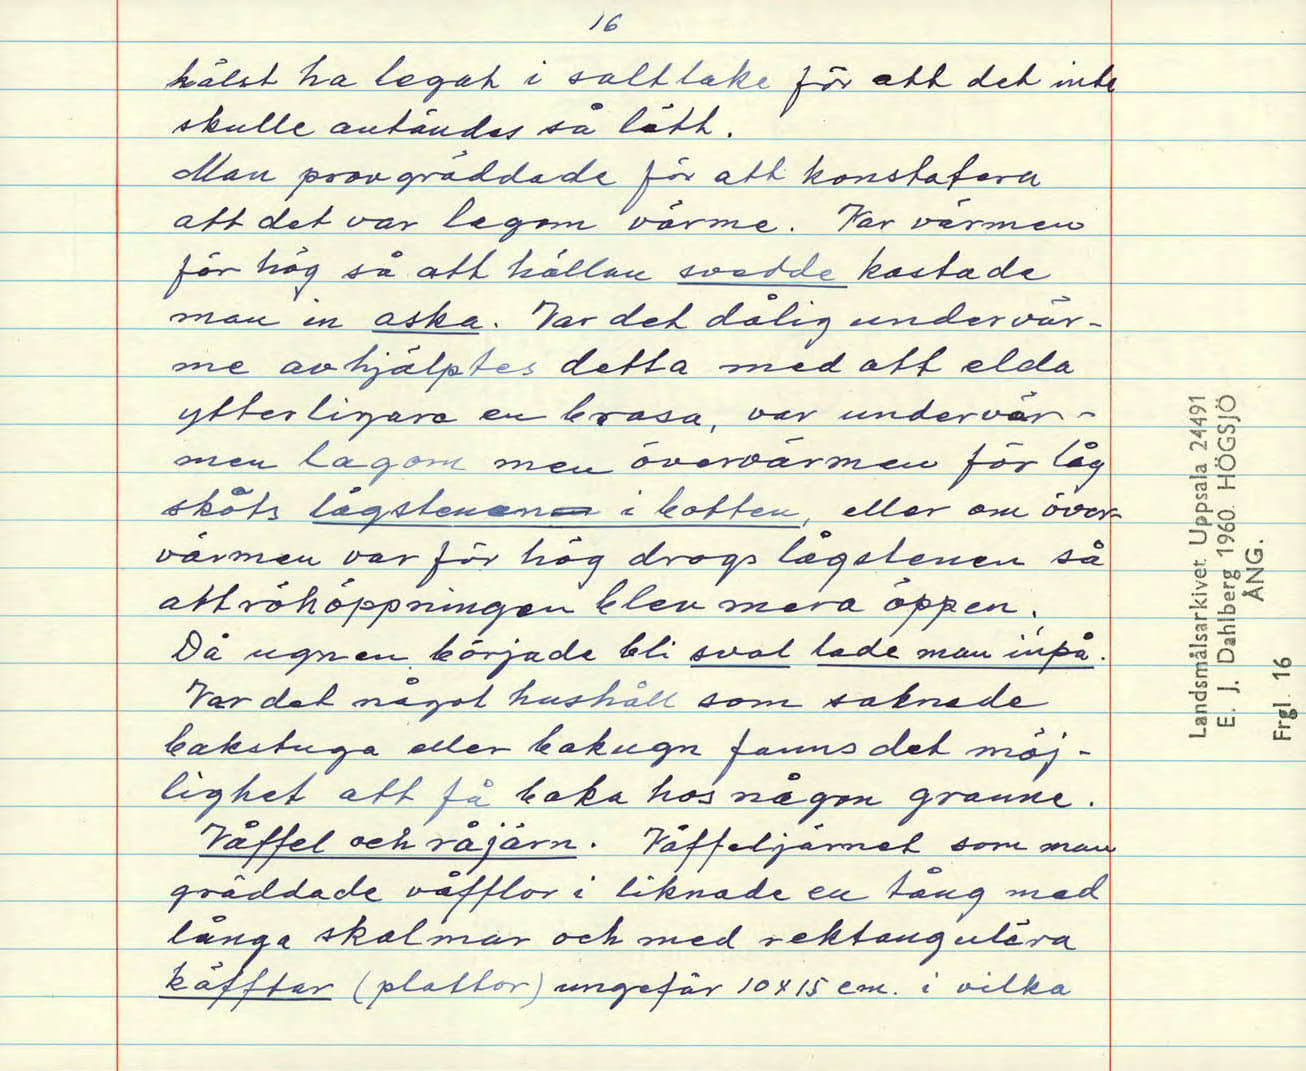 16
hälst ha legat i saltlake för att det inte
skulle antändas så lätt.
Man provgräddade för att konstatera
att det var lagom värme. Var värmen
för hög så att hällan svedde kastade
man in aska. Var det dålig undervär-
me avhjälptes detta med att elda
ytterligare en brasa, var undervär-
men lagom men övervärmen för låg
sköts lågstenen i botten, eller om över-
värmen var för hög drogs lågstenen så
att rököppningen blev mera öppen.
Då ugnen började bli sval lade man inpå.
Var det något hushåll som saknade
bakstuga eller bakugn fanns det möj-
lighet att få baka hos någon granne.
Våffel och råjärn. Våffeljärnet som man
gräddade våfflor i liknade en tång med
långa skalmar och med rektangulära
käfftar (plattor) ungefär 10 x 15 cm. i vilka
Landsmålsarkivet Uppsala 24491
E. J. Dahlberg 1960. HÖGSJÖ
ÅNG.
Frgl. 16